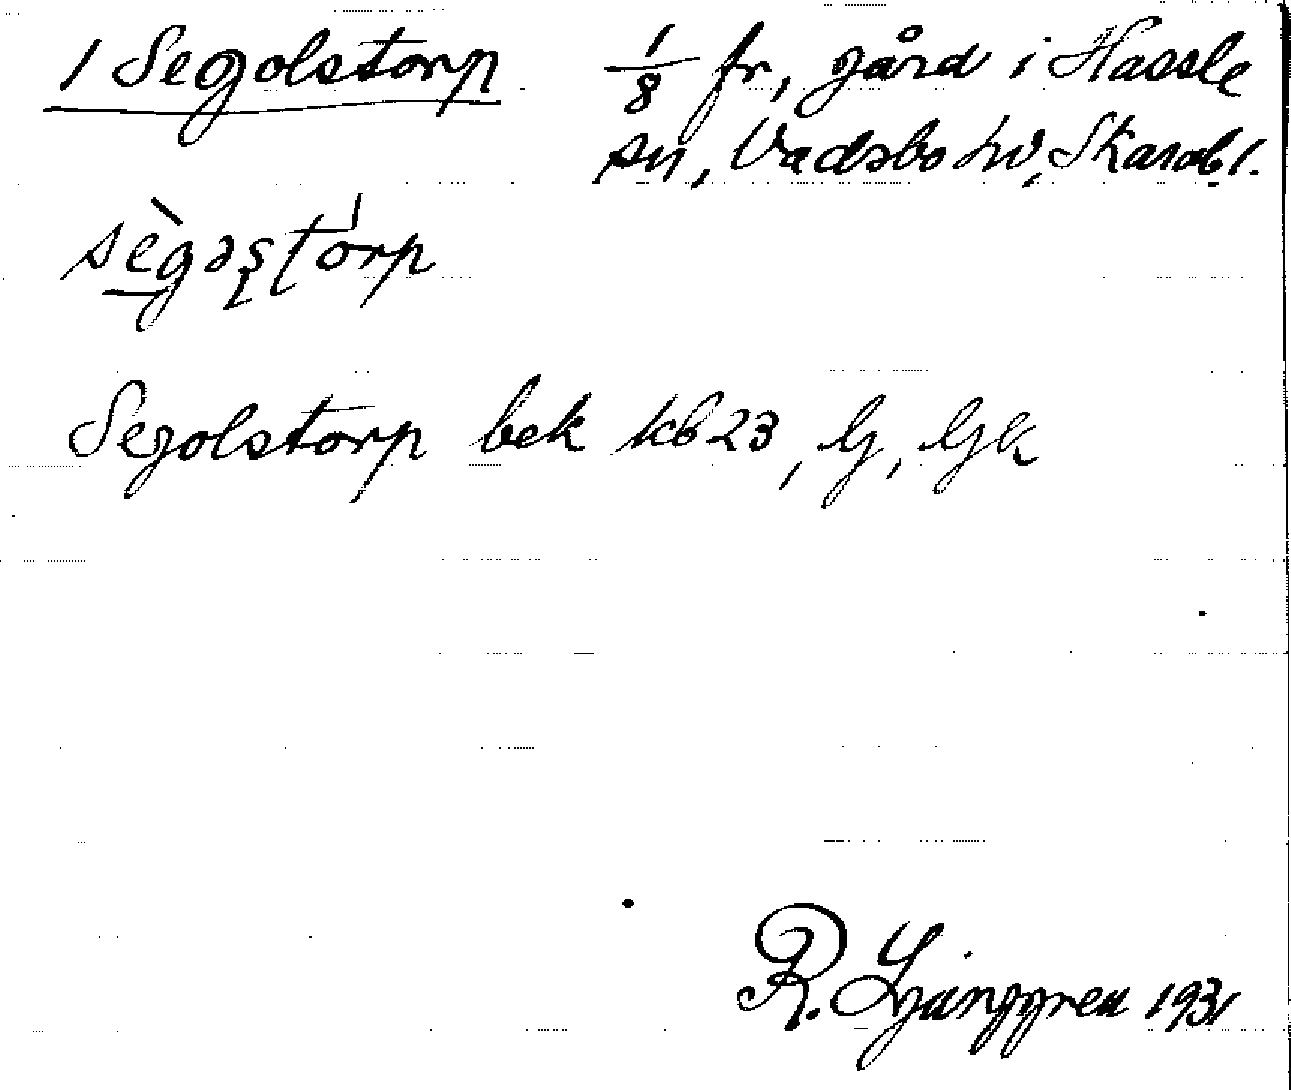 1 Segolstorp 1/8 fr, gård i Hassle
sn, Vadsbo hd, Skarabl.
sègəstorp
Segolstorp bek kb 23, G, Gk
R. Ljunggren 1931